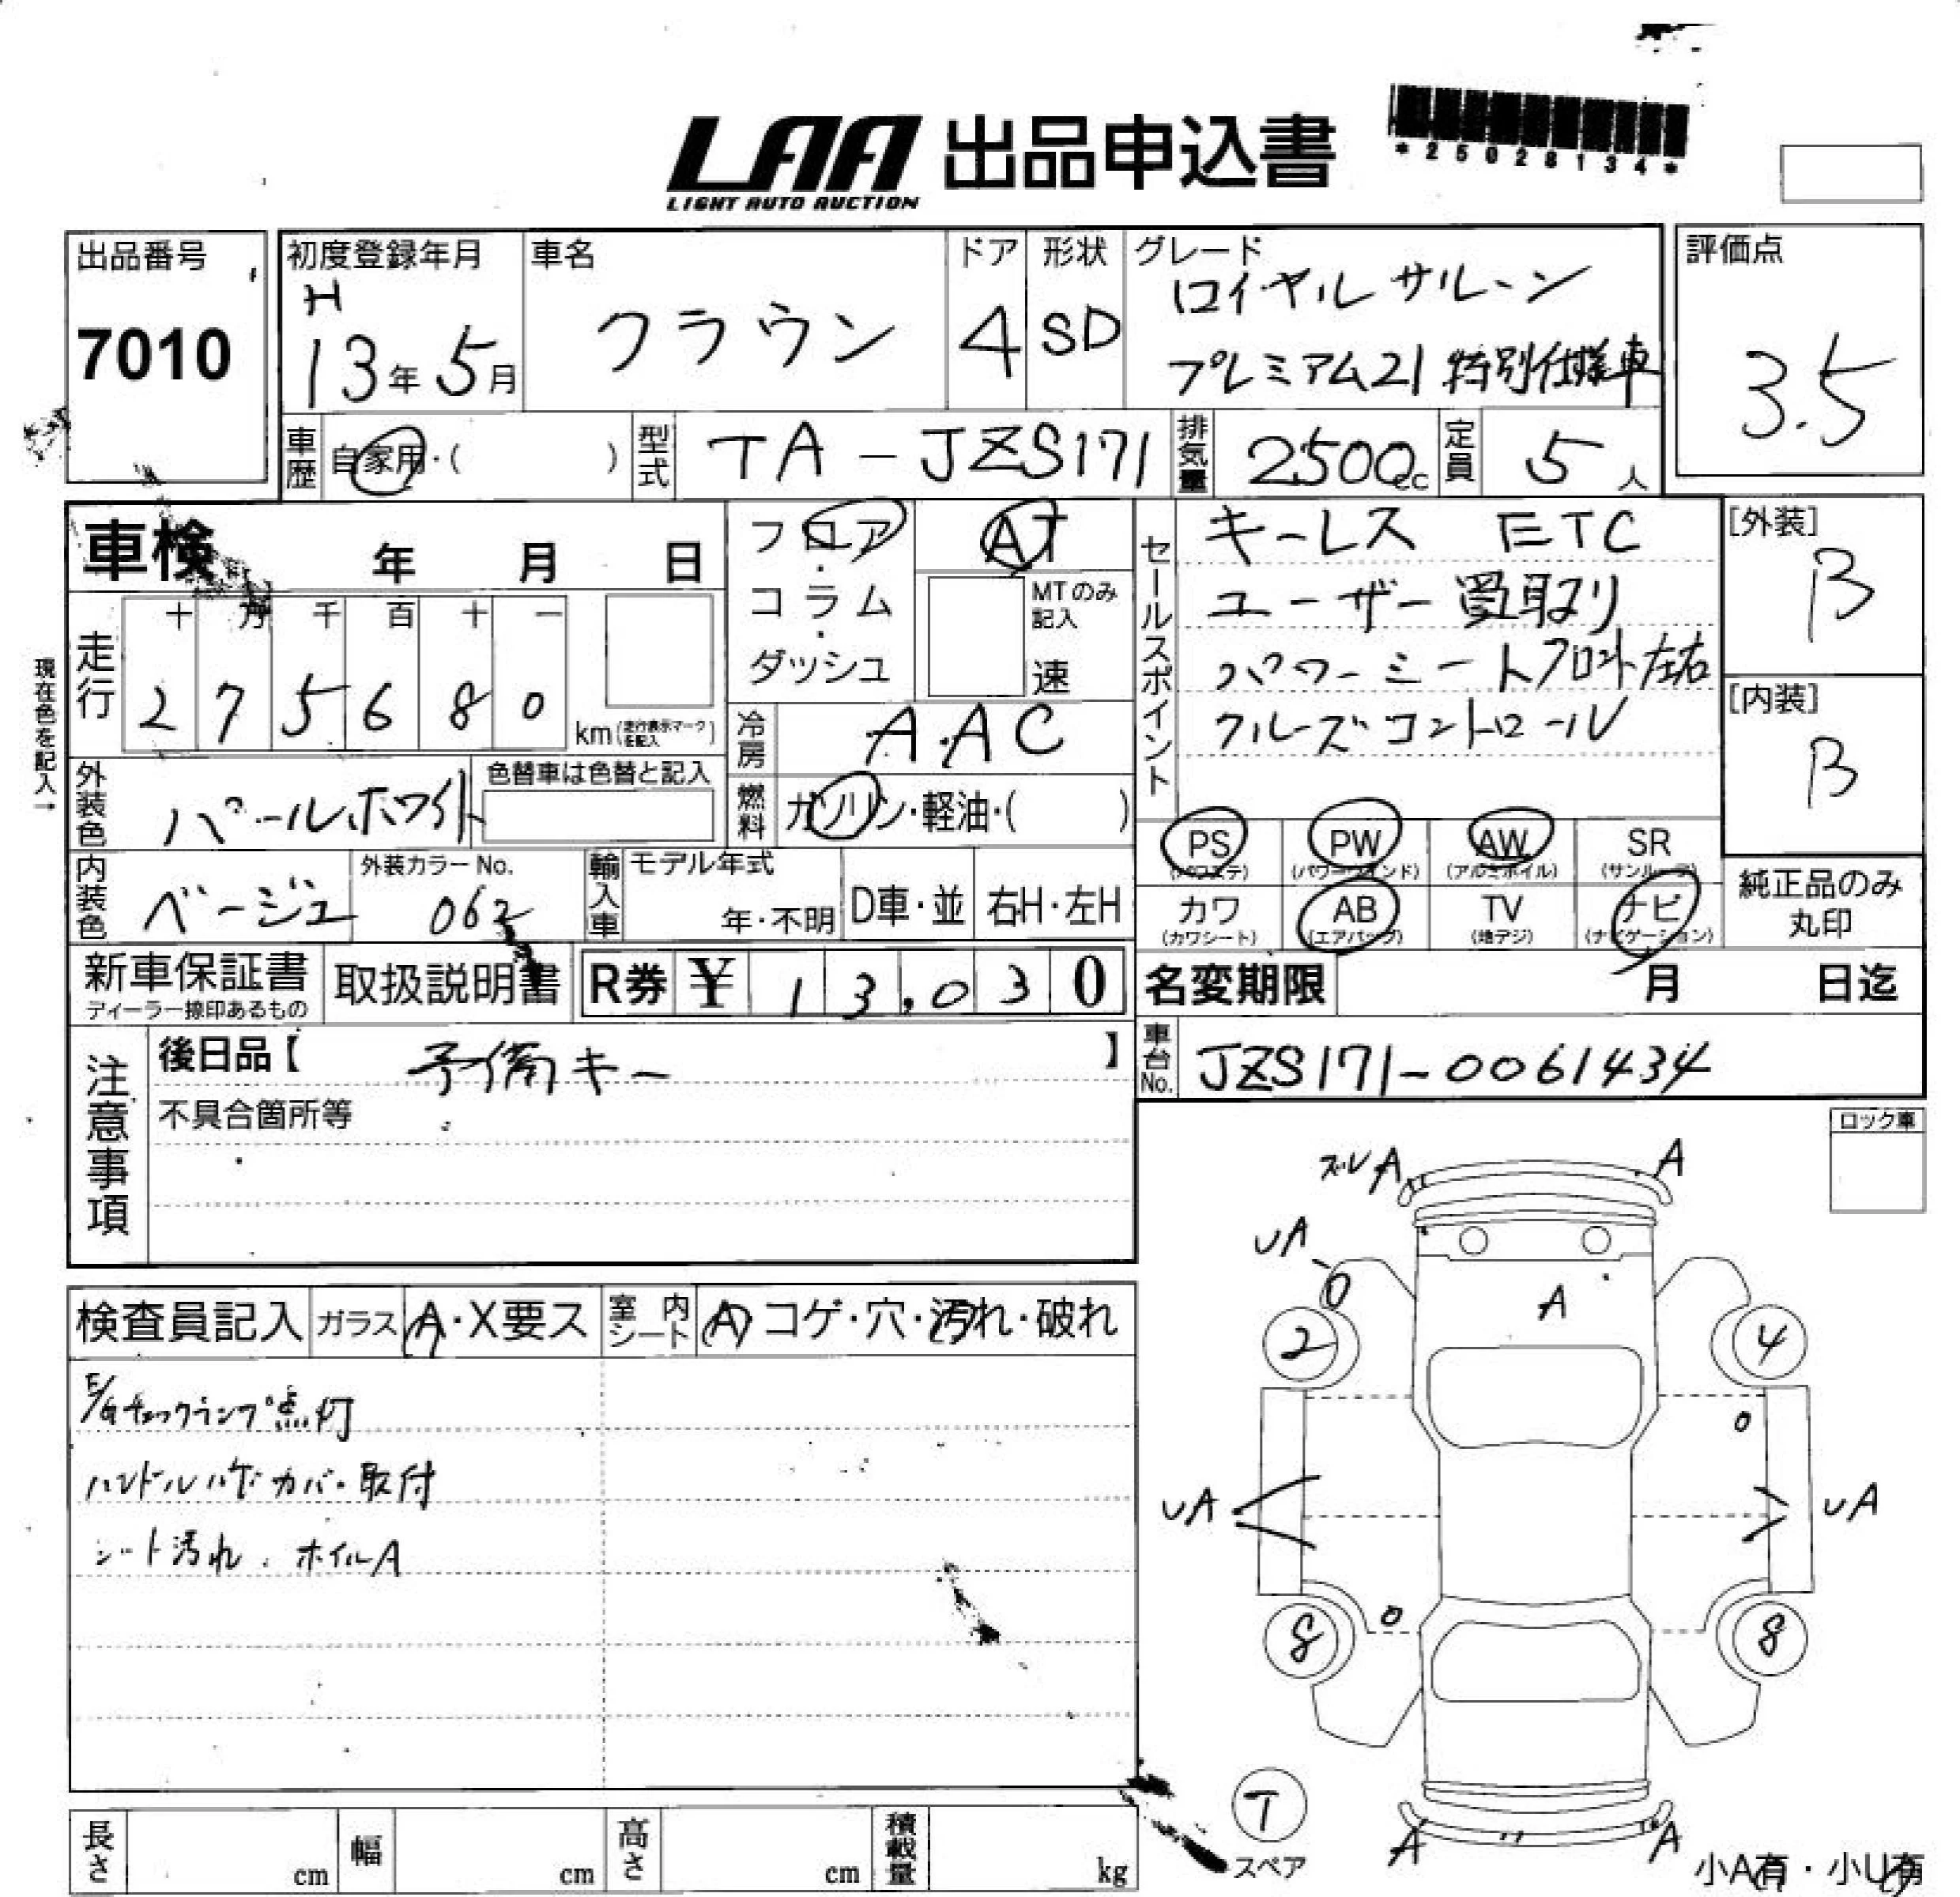 LAA 出品申込書
LIGHT AUTO AUCTION
*25028134*
出品番号
7010
初度登録年月
H
13年 5月
車名
クラウン
ドア
4
形状
SD
グレード
ロイヤルサルーン
プレミアム21 特別仕様車
評価点
3.5
車歴
自家用・( )
型式
TA-JZS171
排気量
2500cc
定員
5人
車検 年 月 日
フロア・コラム・ダッシュ
AT
MTのみ記入
速
セールスポイント
キーレス ETC
ユーザー買取り
パワーシートフロント左右
クルーズコントロール
[外装]
B
[内装]
B
現在色を記入→
走行
十 万 千 百 十 一
2 7 5 6 8 0
km(走行表示マークを記入)
冷房
A.AC
外装色
パールホワイト
色替車は色替と記入
燃料
ガソリン・軽油・( )
PS (パワステ)
PW (パワーウインド)
AW (アルミホイル)
SR (サンルーフ)
カワ (カワシート)
AB (エアバック)
TV (地デジ)
ナビ (ナビゲーション)
純正品のみ
丸印
内装色
ベージュ
外装カラーNo.
062
輸入車
モデル年式
年・不明
D車・並
右H・左H
新車保証書
ディーラー捺印あるもの
取扱説明書
R券 ¥ 13,030
名変期限 月 日迄
注意事項
後日品【 予備キー 】
不具合箇所等
車台No.
JZS171-0061434
ロック車
検査員記入
ガラス
A・X要ス
室内シート
A コゲ・穴・汚れ・破れ
E/Gチェックランプ点灯
ハンドルハゲカバー取付
シート汚れ . ホイルA
ズレA
A
UA
A
2
4
UA
UA
8
8
T
スペア
A
A
小A有・小U有
長さ cm
幅 cm
高さ cm
積載量 kg